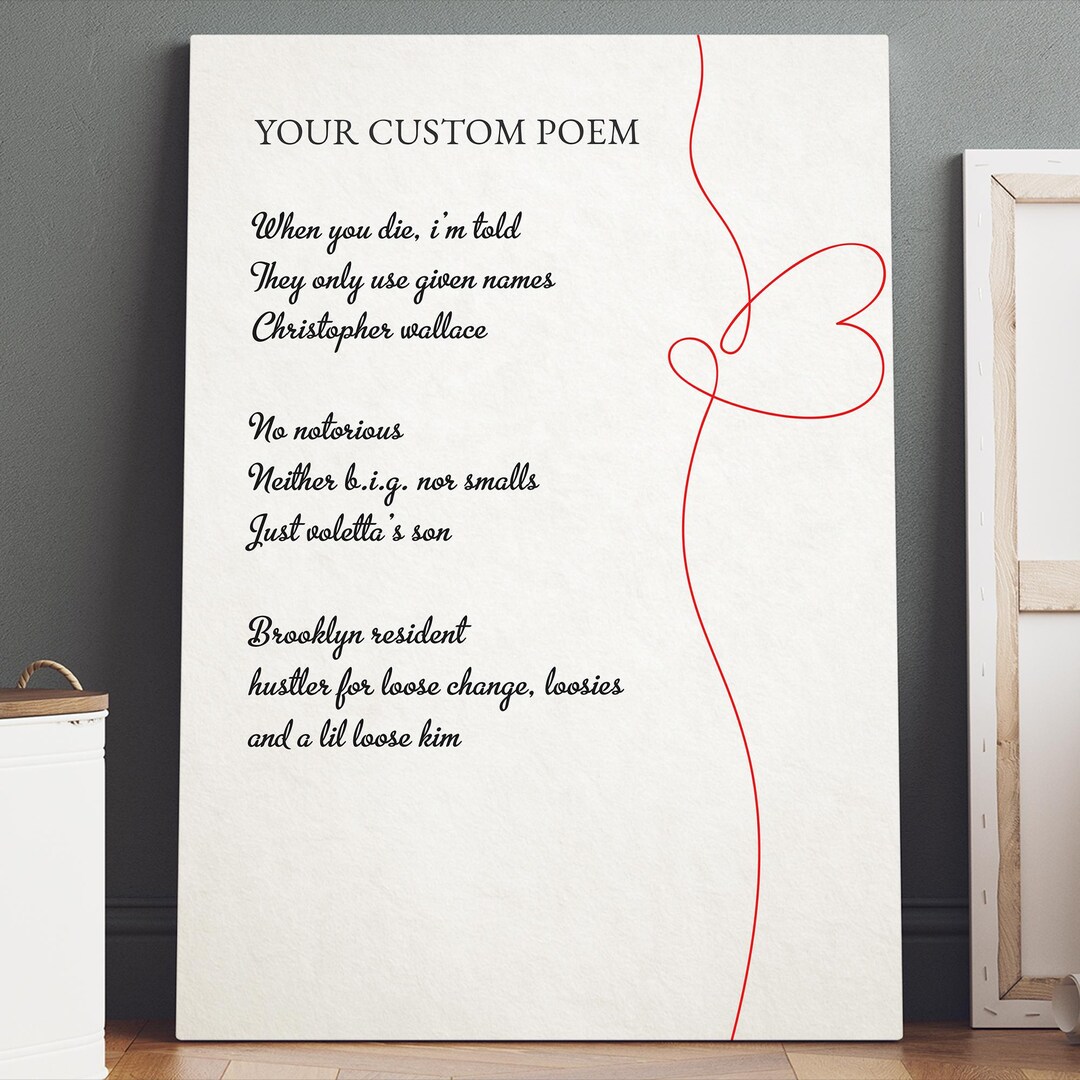 YOUR CUSTOM POEM
When you die, i'm told
They only use given names
Christopher wallace
No notorious
Neither b.i.g. nor smalls
Just voletta's son
Brooklyn resident
hustler for loose change, loosies
and a lil loose kim